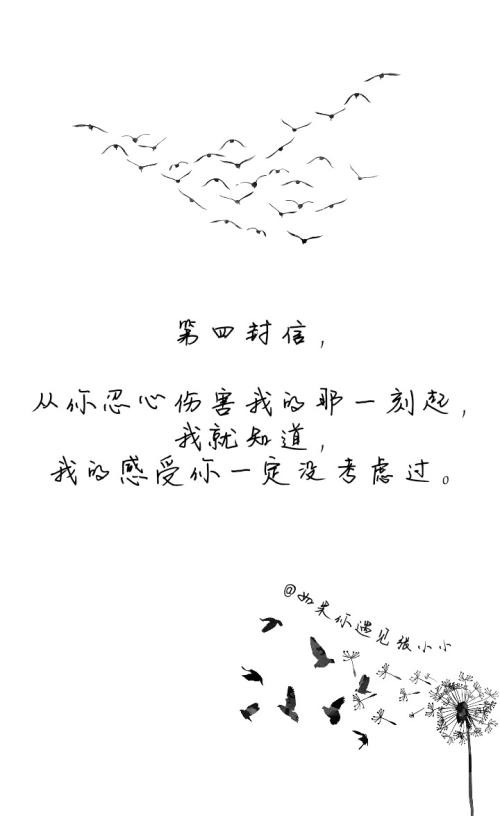 第四封信，
从你忍心伤害我的那一刻起，
我就知道，
我的感受你一定没考虑过。
@如果你遇见张小小